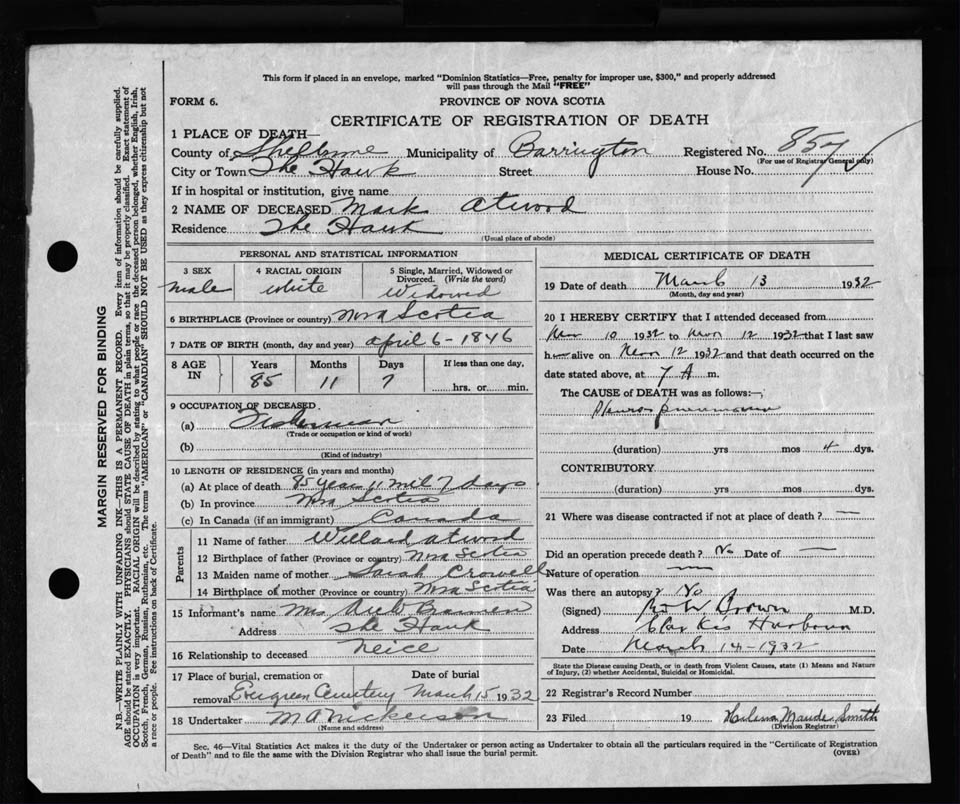 This form if placed in an envelope, marked "Dominion Statistics—Free, penalty for improper use, $300," and properly addressed
will pass through the Mail "FREE"
FORM 6.
PROVINCE OF NOVA SCOTIA
CERTIFICATE OF REGISTRATION OF DEATH
1 PLACE OF DEATH—
County of Shelburne Municipality of Barrington Registered No. 857
(For use of Registrar General only)
City or Town The Hawk Street House No.
If in hospital or institution, give name
2 NAME OF DECEASED Mark Atwood
Residence The Hawk
(Usual place of abode)
PERSONAL AND STATISTICAL INFORMATION
3 SEX 4 RACIAL ORIGIN 5 Single, Married, Widowed or Divorced. (Write the word)
male white Widowed
6 BIRTHPLACE (Province or country) Nova Scotia
7 DATE OF BIRTH (month, day and year) April 6 - 1846
8 AGE IN Years Months Days If less than one day,
85 11 7 hrs. or min.
9 OCCUPATION OF DECEASED
(a) Fisherman
(Trade or occupation or kind of work)
(b)
(Kind of industry)
10 LENGTH OF RESIDENCE (in years and months)
(a) At place of death 85 year 11 7 days
(b) In province Nova Scotia
(c) In Canada (if an immigrant) Canada
Parents
11 Name of father Willard Atwood
12 Birthplace of father (Province or country) Nova Scotia
13 Maiden name of mother Sarah Crowell
14 Birthplace of mother (Province or country) Nova Scotia
15 Informant's name Mrs
Address The Hawk
16 Relationship to deceased Neice
17 Place of burial, cremation or removal Date of burial
Evergreen Cemetery March 15 1932
18 Undertaker M A Nickerson
(Name and address)
MEDICAL CERTIFICATE OF DEATH
19 Date of death March 13 1932
(Month, day and year)
20 I HEREBY CERTIFY that I attended deceased from
10 1932 to 12 1932 that I last saw
h alive on 12 1932 and that death occurred on the
date stated above, at 7 A m.
The CAUSE of DEATH was as follows:—
Pleuro pneumonia
(duration) yrs mos 4 dys.
CONTRIBUTORY.
(duration) yrs mos dys.
21 Where was disease contracted if not at place of death? —
Did an operation precede death? No Date of —
Nature of operation —
Was there an autopsy? No
(Signed) Brown M.D.
Address Clarkes Harbour
Date March 14 - 1932
State the Disease causing Death, or in death from Violent Causes, state (1) Means and Nature
of Injury, (2) whether Accidental, Suicidal or Homicidal.
22 Registrar's Record Number
23 Filed 19 Maude Smith
(Division Registrar)
Sec. 46—Vital Statistics Act makes it the duty of the Undertaker or person acting as Undertaker to obtain all the particulars required in the "Certificate of Registration
of Death" and to file the same with the Division Registrar who shall issue the burial permit.
(OVER)
MARGIN RESERVED FOR BINDING
N.B.—WRITE PLAINLY WITH UNFADING INK—THIS IS A PERMANENT RECORD. Every item of information should be carefully supplied.
AGE should be stated EXACTLY. PHYSICIANS should STATE CAUSE OF DEATH in plain terms, so that it may be properly classified. Exact statement of
OCCUPATION is very important. RACIAL ORIGIN will be described by stating to what people or race the deceased person belonged, whether English, Irish,
Scotch, French, German, Russian, Ruthenian, etc. The terms "AMERICAN" or "CANADIAN" SHOULD NOT BE USED as they express citizenship but not
a race or people. See instructions on back of Certificate.